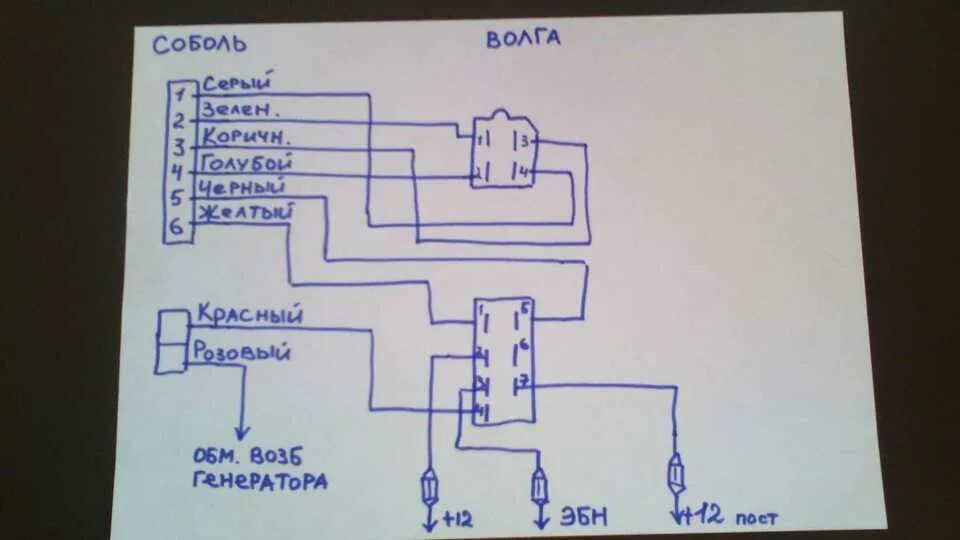 СОБОЛЬ
ВОЛГА
1 СЕРЫЙ
2 ЗЕЛЕН.
3 КОРИЧН.
4 ГОЛУБОЙ
5 ЧЕРНЫЙ
6 ЖЕЛТЫЙ
1 3
2 4
КРАСНЫЙ
РОЗОВЫЙ
1 5
2 6
3 7
4
ОБМ. ВОЗБ
ГЕНЕРАТОРА
+12
ЭБН
+12 пост